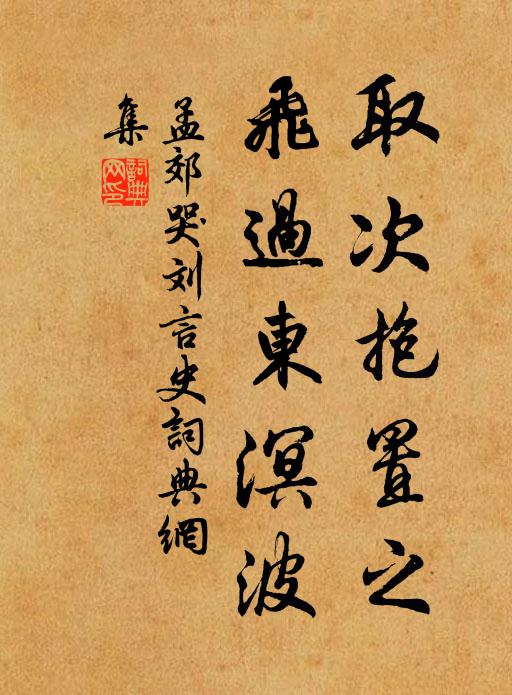 取次抱置之
飛過東溟波
孟郊哭刘言史詞典網
集
詞典網印